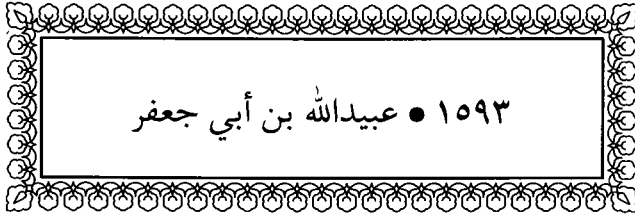 ١٥٩٣ • عبيدالله بن أبي جعفر